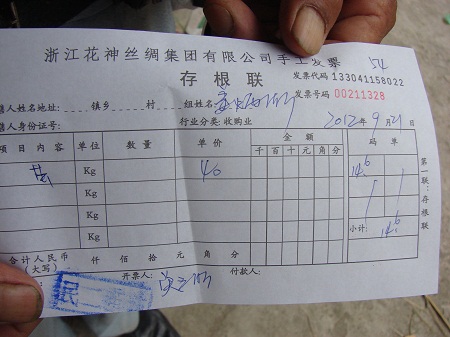 浙江花神丝绸集团有限公司手工发票
54
存根联
发票代码 133041158022
发票号码 00211328
售人姓名地址: 镇乡 村 组姓名:
售人身份证号: 行业分类:收购业 2012年9月21日
项目内容 单位 数量 单价 金额 码单
千 百 十 元 角 分
Kg 46 14.6
Kg
Kg
Kg 小计: 14.6
合计人民币 仟 佰 拾 元 角 分
(大写)
开票人: 付款人:
第一联:存根联